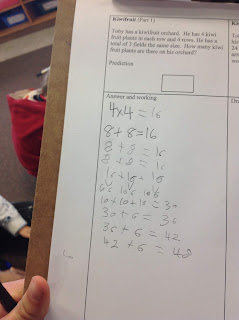 Kiwifruit (Part 1)
Toby has a kiwifruit orchard. He has 4 kiwi
fruit plants in each row and 4 rows. He has a
total of 3 fields the same size. How many kiwi
fruit plants are there on his orchard?
Prediction
Answer and working
4x4=16
8+8=16
8+8=16
8+8=16
16+16+16
10+10+10=30
30+6=36
36+6=42
42+6=48